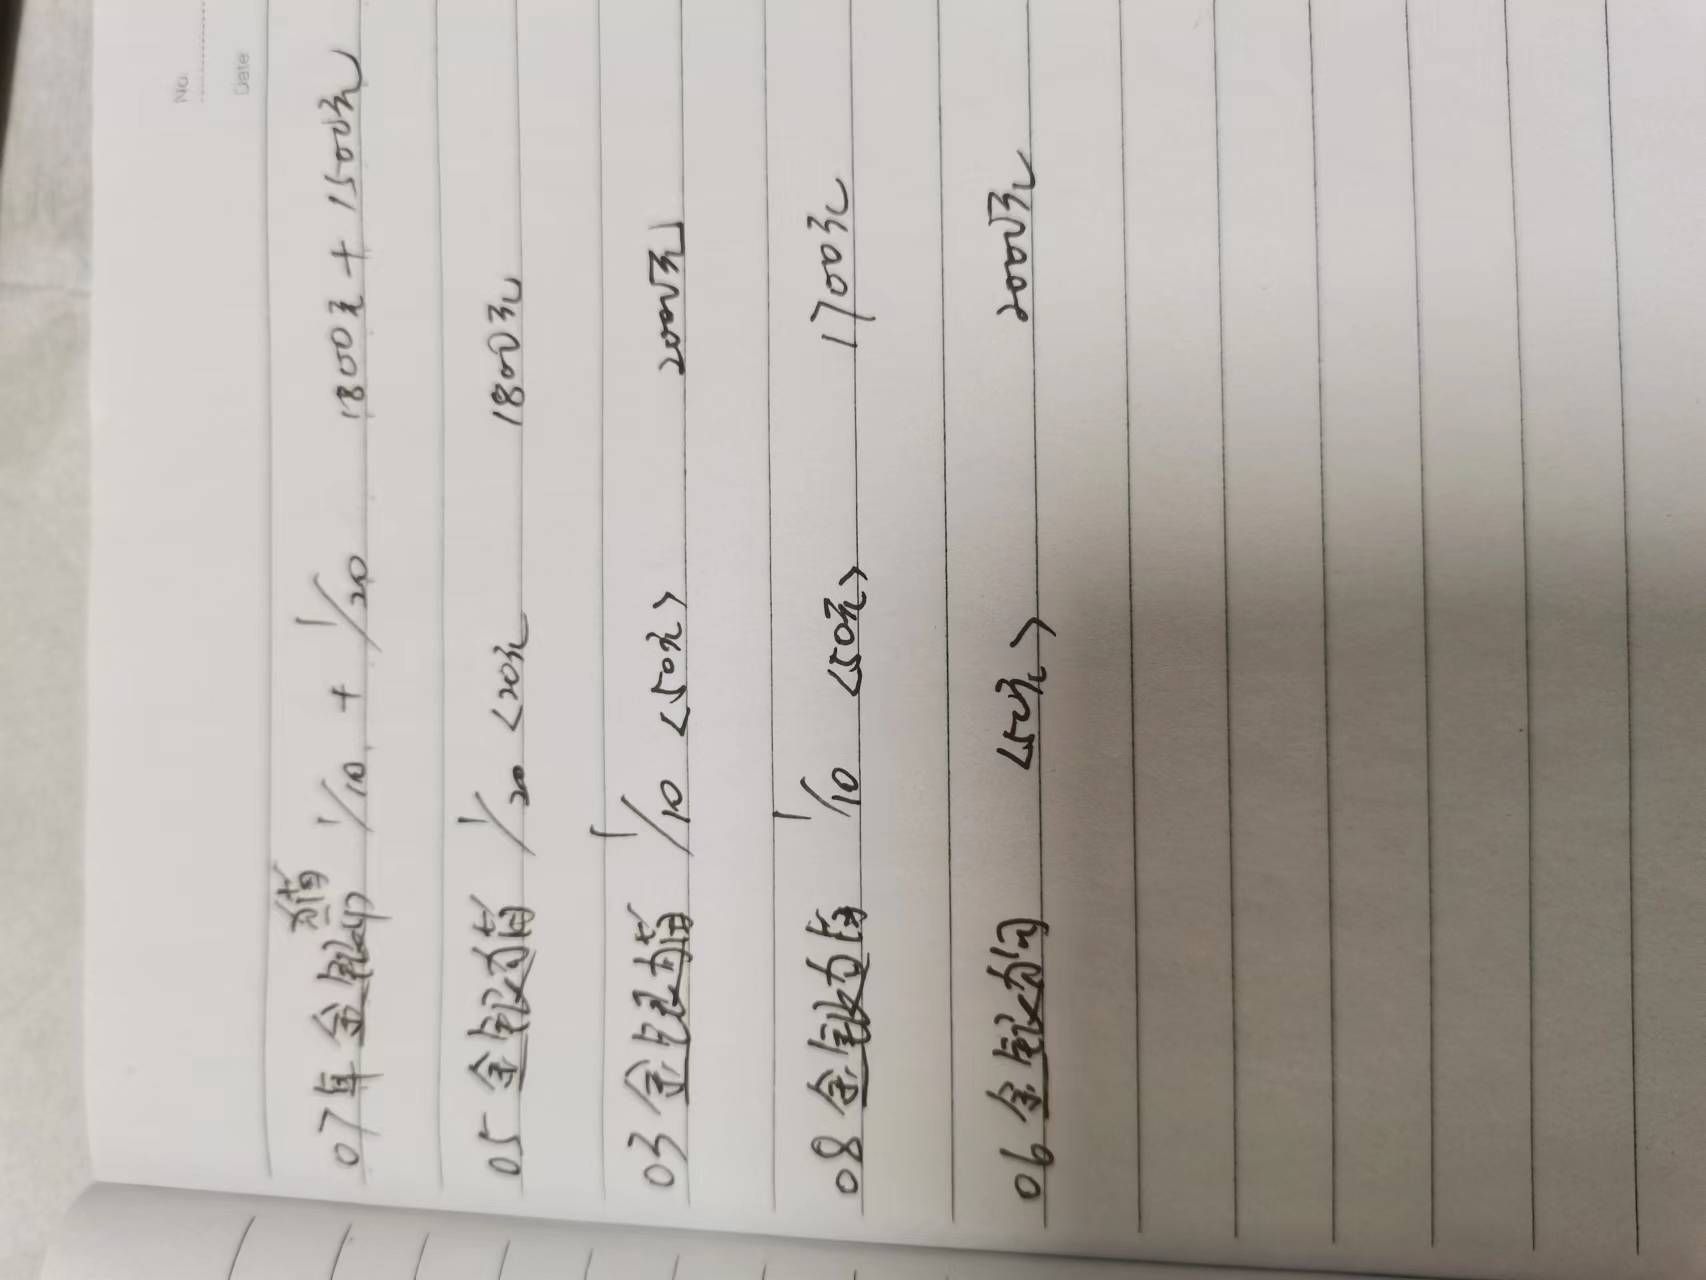 No.
Date
07年 金银 1/10 + 1/20 1800元 + 1500元
05 金银 1/20 <20元 1800元
03 金银 1/10 <50元> 2000元
08 金银 1/10 <50元> 1700元
06 金银 <50元> 2000元